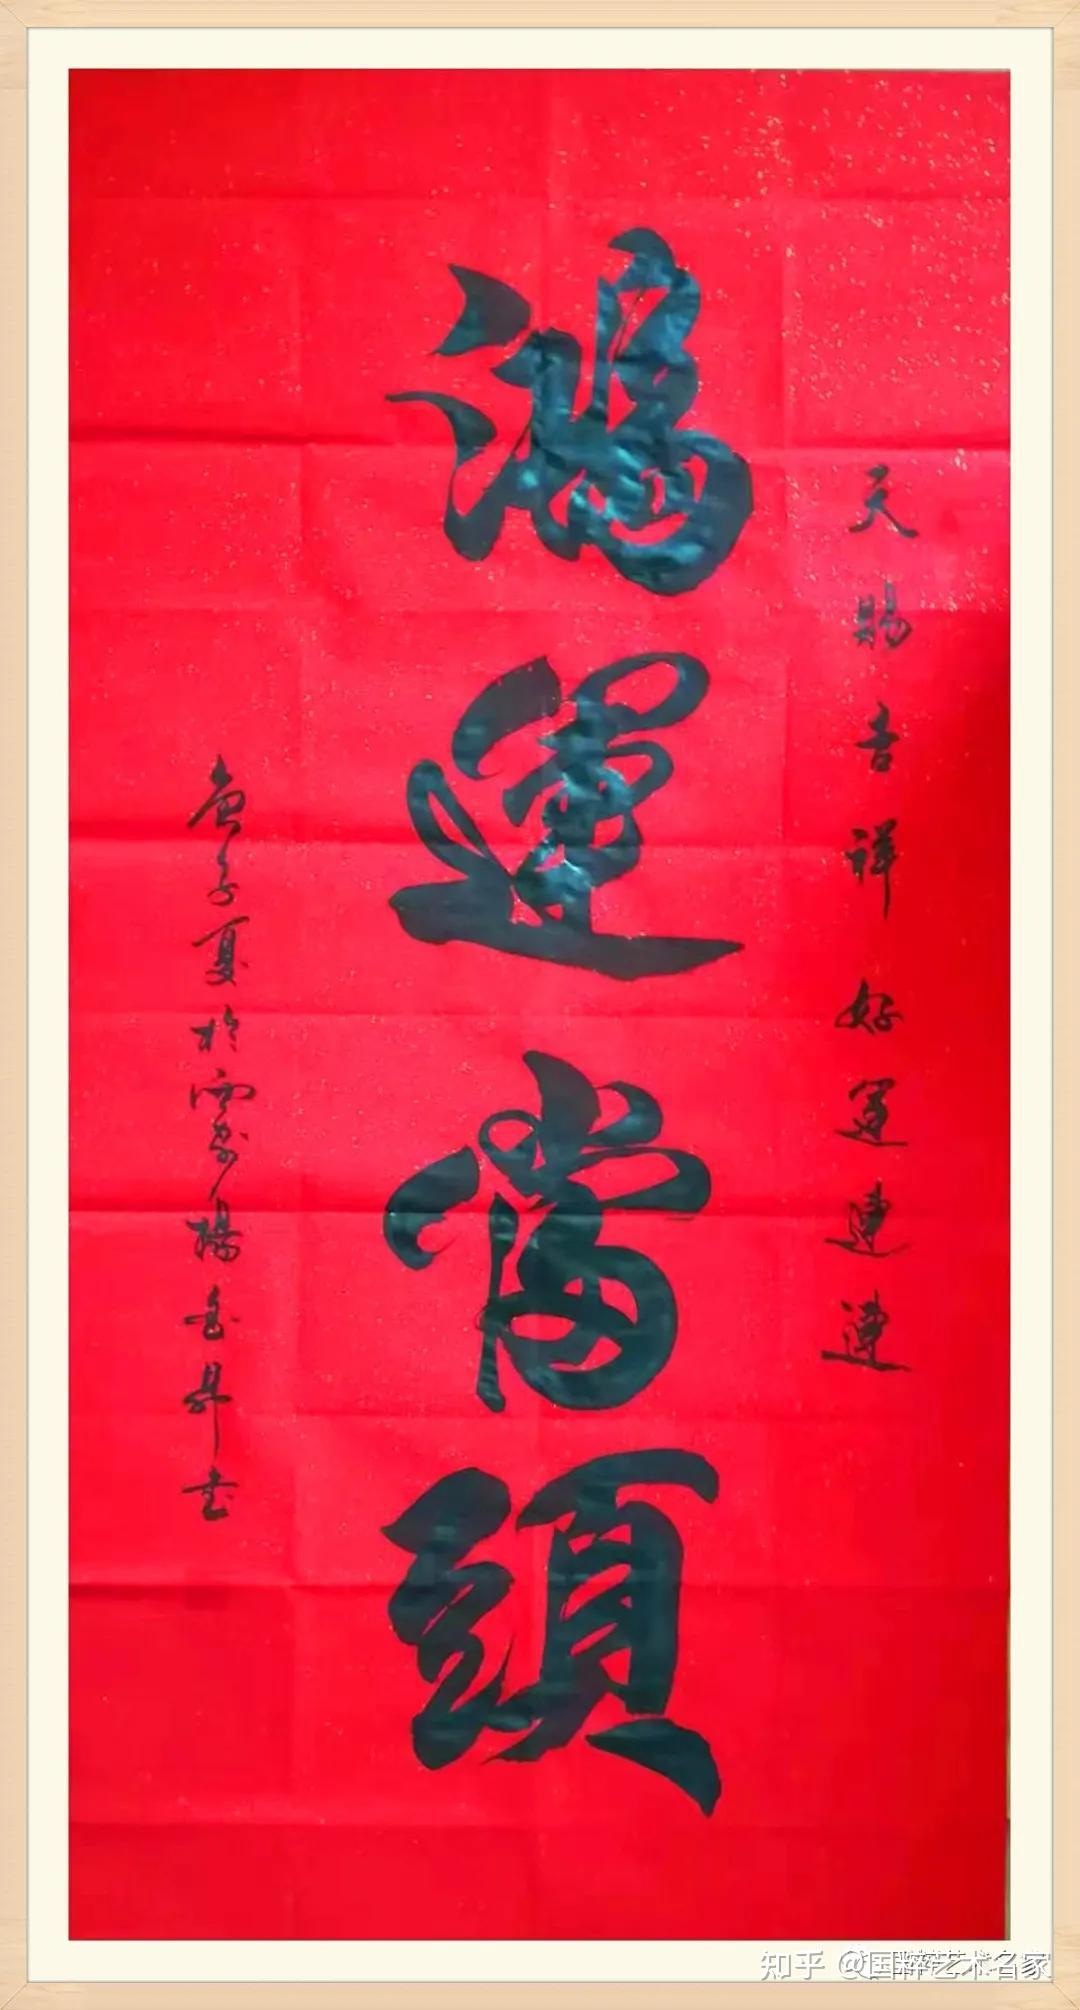 天賜吉祥好運連連
鴻運當頭
庚子夏於楊書
知乎 @国粹艺术名家